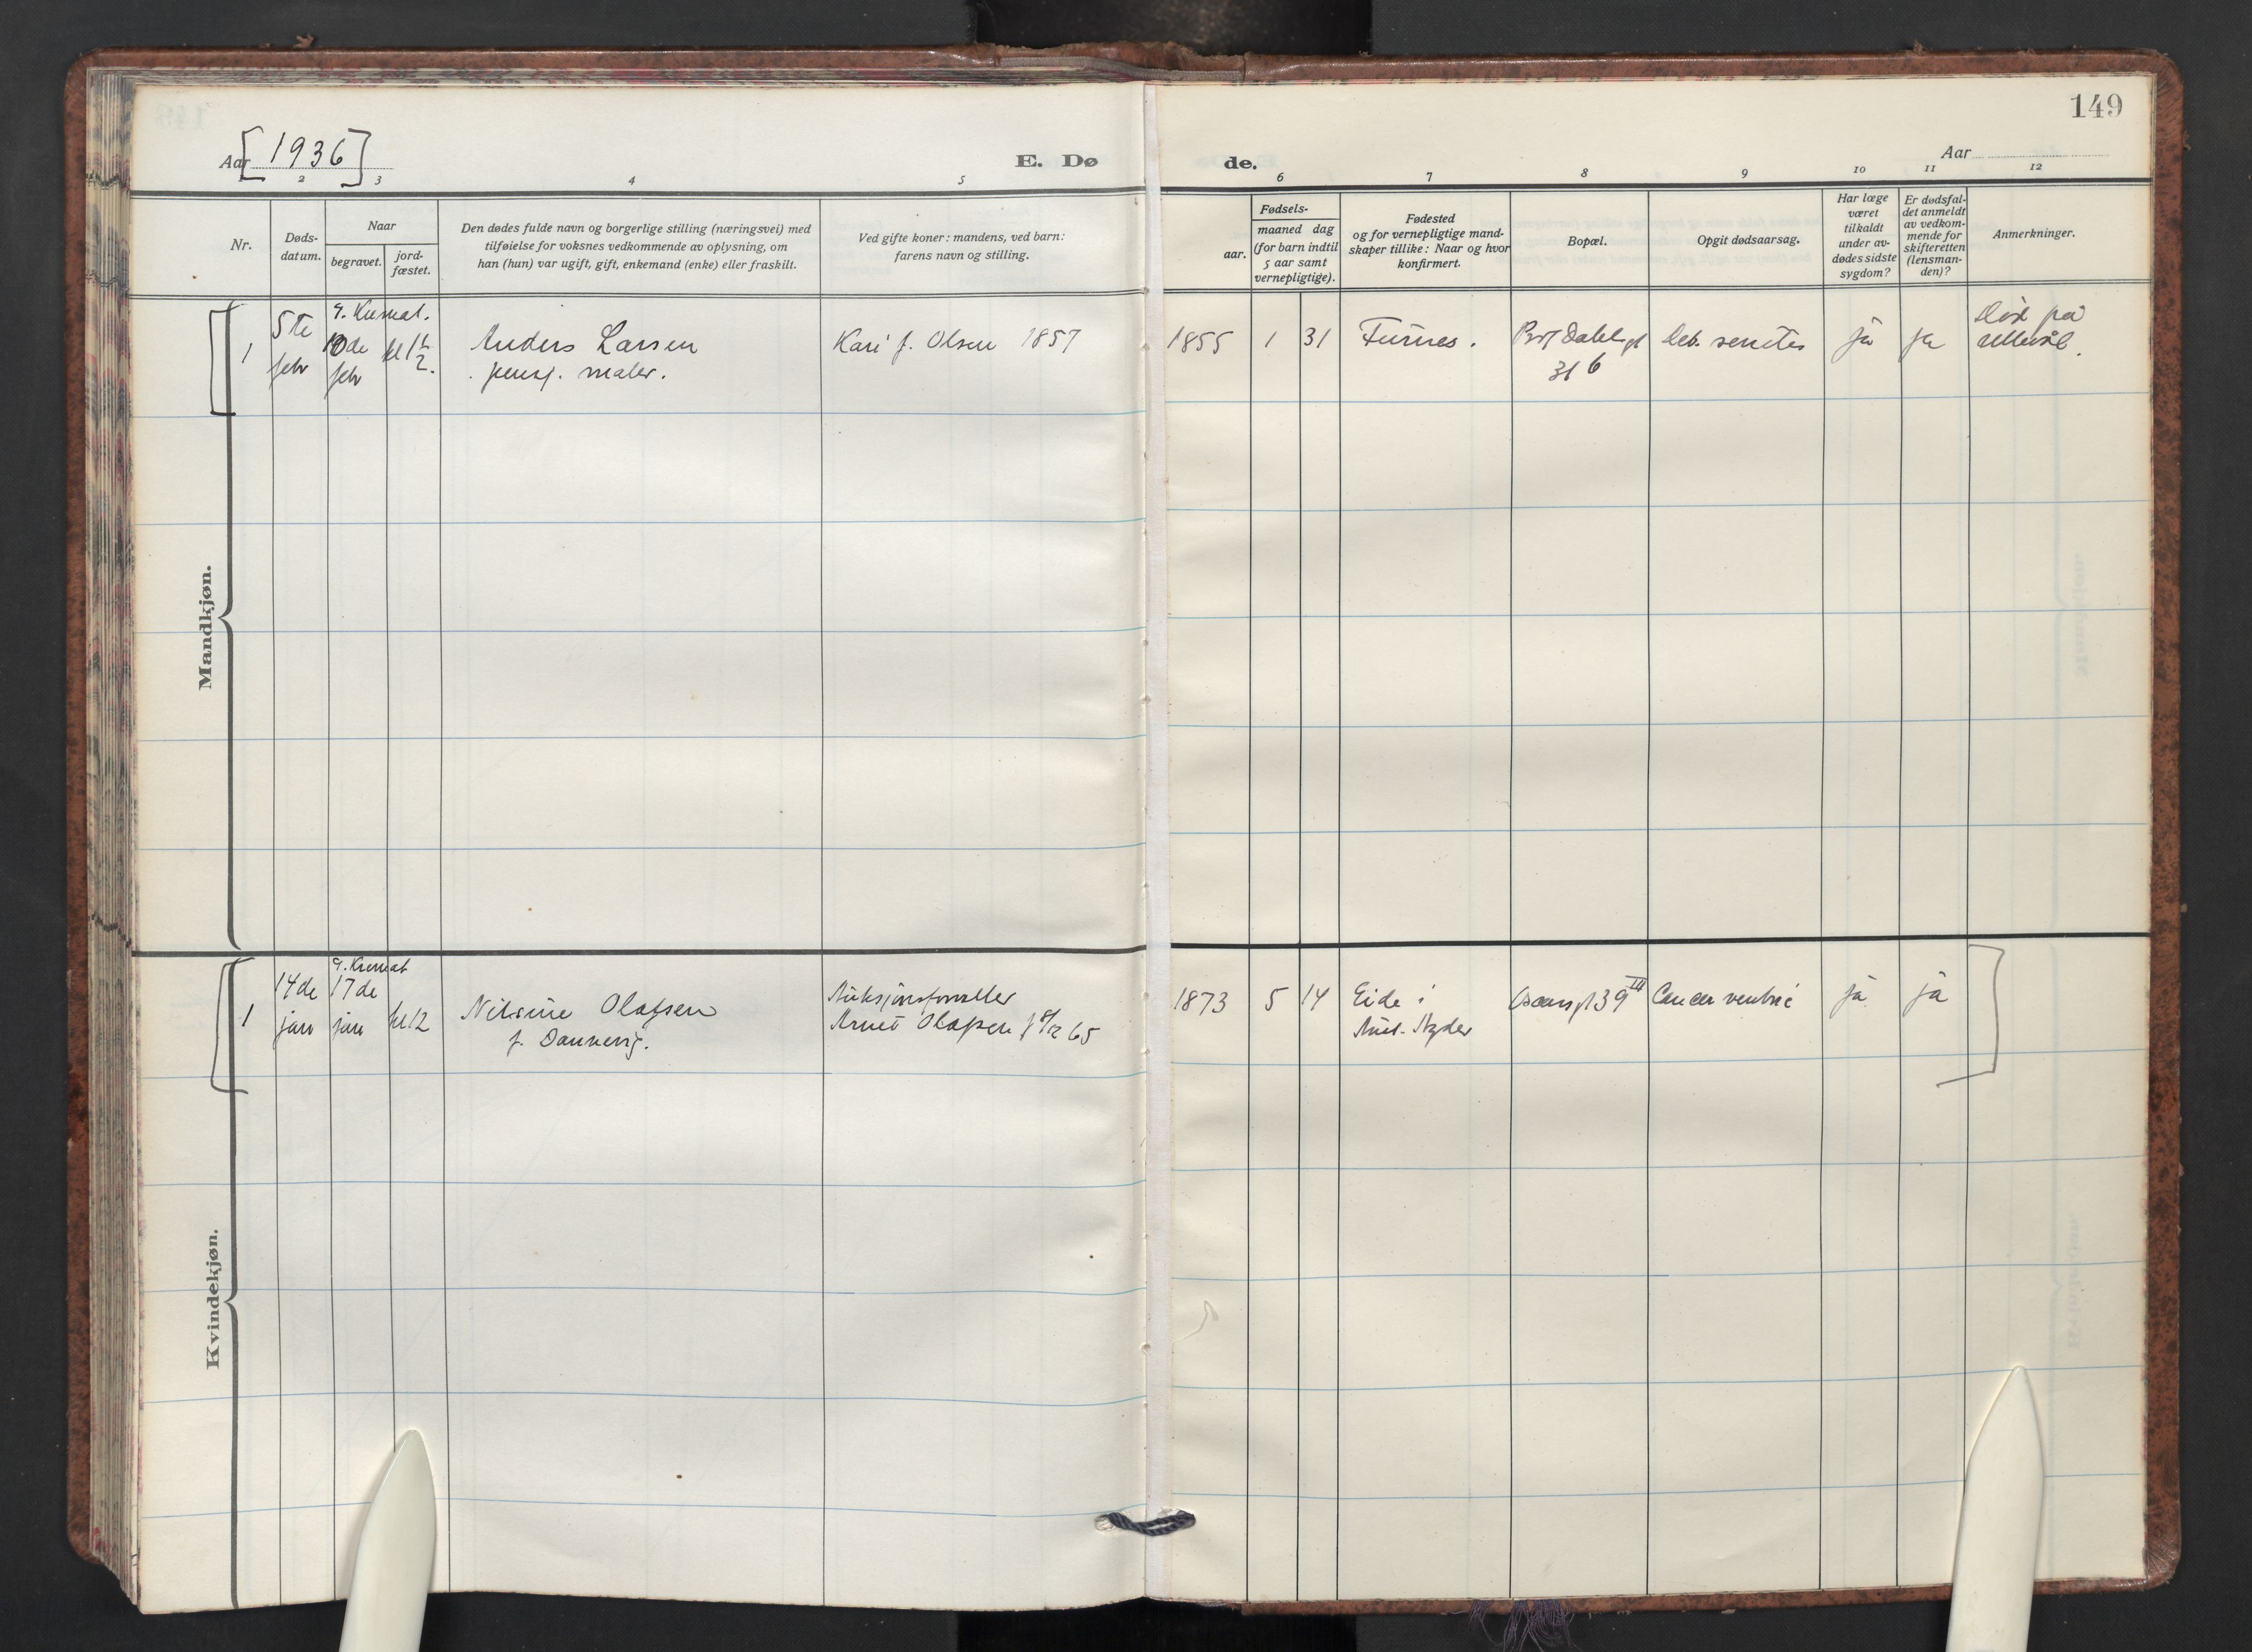 149
Aar [1936]
E. Døde.
Aar
2 3 4 5 6 7 8 9 10 11 12
Nr.
Døds-
datum.
Naar
begravet.
jord-
fæstet.
Den dødes fulde navn og borgerlige stilling (næringsvei) med
tilføielse for voksnes vedkommende av oplysning, om
han (hun) var ugift, gift, enkemand (enke) eller fraskilt.
Ved gifte koner: mandens, ved barn:
farens navn og stilling.
Fødsels-
aar.
maaned dag
(for barn indtil
5 aar samt
vernepligtige).
Fødested
og for vernepligtige mand-
skaper tillike: Naar og hvor
konfirmert.
Bopæl.
Opgit dødsaarsag.
Har læge
været
tilkaldt
under av-
dødes sidste
sygdom?
Er dødsfal-
det anmeldt
av vedkom-
mende for
skifteretten
(lensman-
den)?
Anmerkninger.
Mandkjøn.
1
5te
febr
g. Kremat.
10de
febr
kl 1½
Anders Larsen
pensj. maler.
Kari f. Olsen 1857
1855 1 31
Furnes.
31 6
Deb. senilis
ja
ja
Død på
Ullevål.
Kvindekjøn.
1
14de
jan
g. Kremat
17de
jan
kl 12
Nilsine Olafsen
f. Dannevig.
Auksjonsforvalter
Arnet Olafsen f 65
1873 5 14
Eide i
Aust-Agder
Oscarsgt 39 III
Cancer ventric
ja
ja